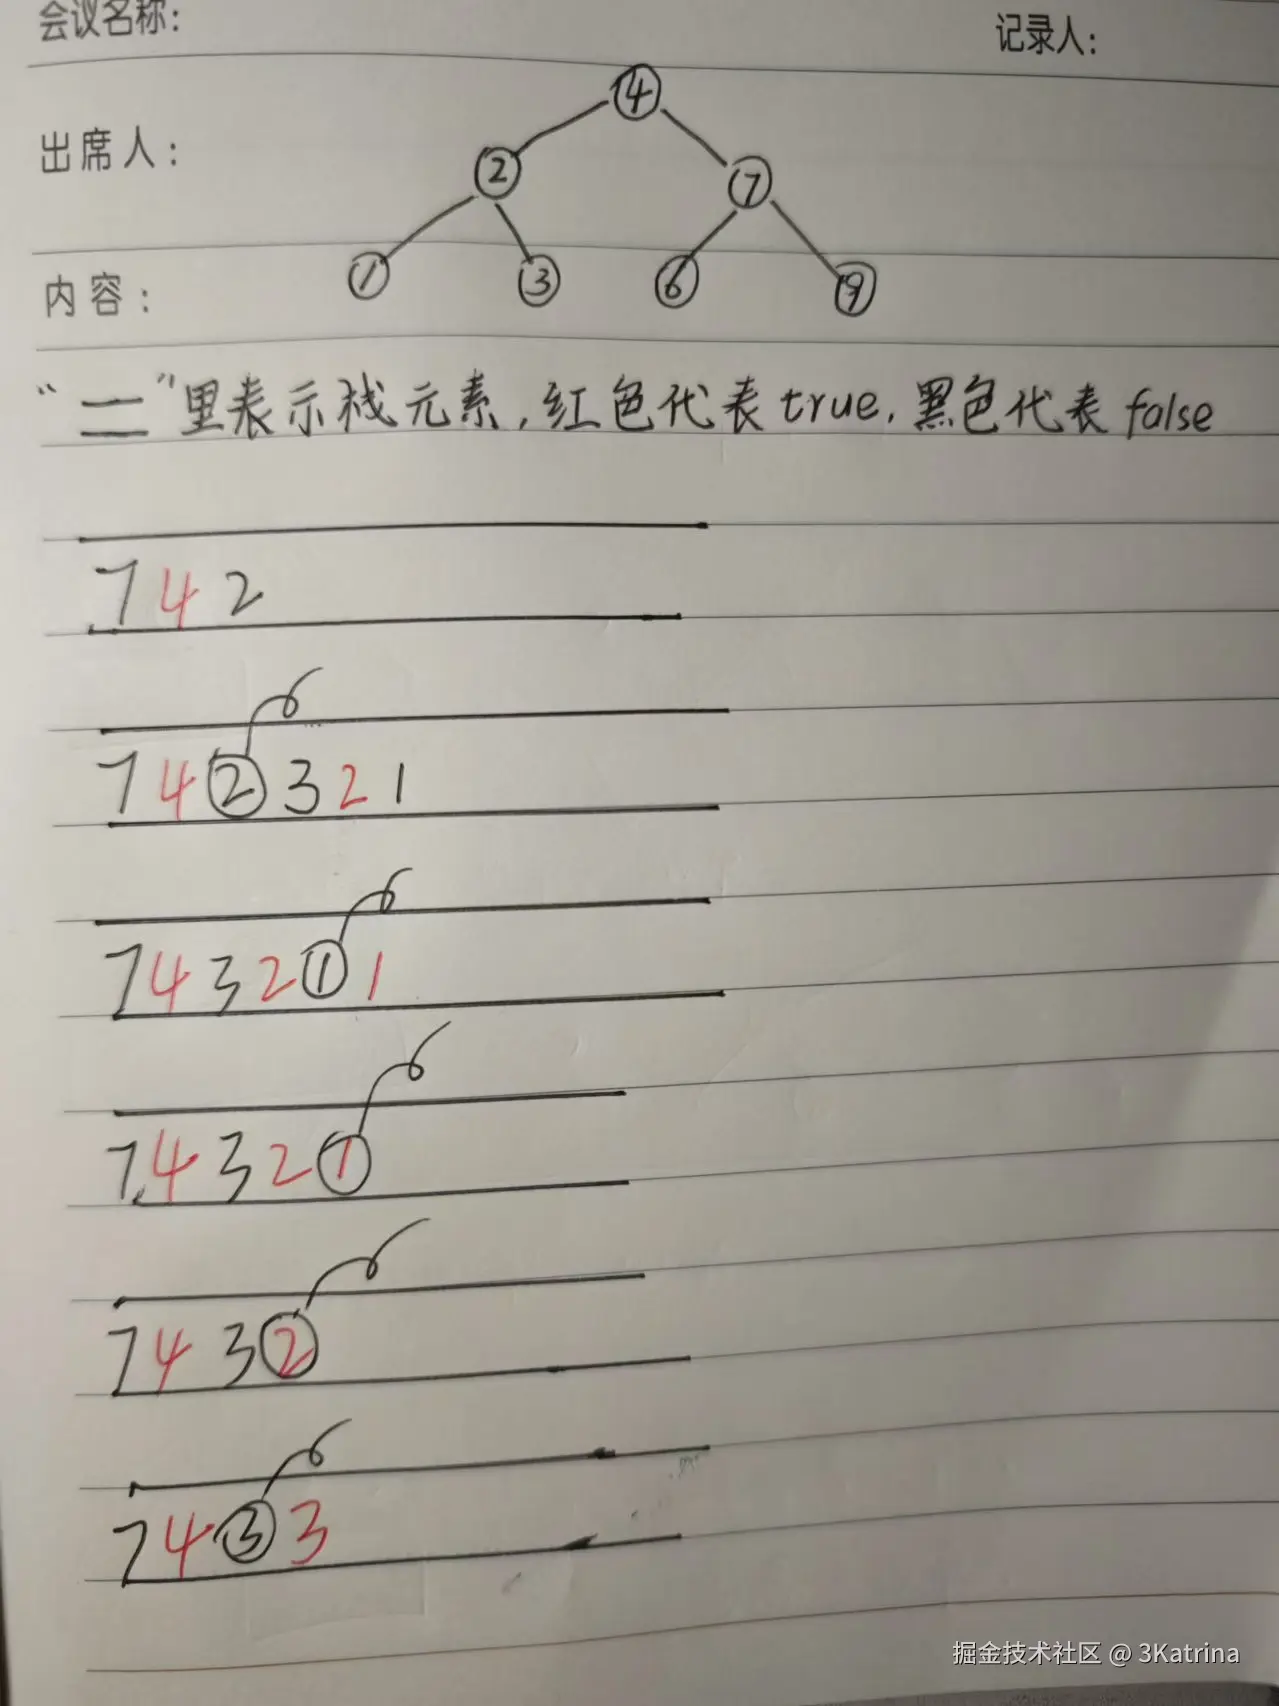 会议名称:
记录人:
出席人:
内容:
4
2 7
1 3 6 9
“二”里表示栈元素,红色代表true,黑色代表false
7 4 2
7 4 2 3 2 1
7 4 3 2 1 1
7 4 3 2 1
7 4 3 2
7 4 3 3
掘金技术社区 @ 3Katrina